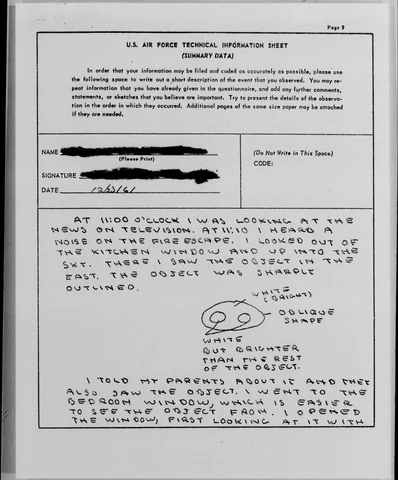 Page 9
U.S. AIR FORCE TECHNICAL INFORMATION SHEET
(SUMMARY DATA)
In order that your information may be filed and coded as accurately as possible, please use
the following space to write out a short description of the event that you observed. You may re-
peat information that you have already given in the questionnaire, and add any further comments,
statements, or sketches that you believe are important. Try to present the details of the observa-
tion in the order in which they occurred. Additional pages of the same size paper may be attached
if they are needed.
NAME
(Please Print)
SIGNATURE
DATE 12/13/61
(Do Not Write in This Space)
CODE:
AT 11:00 O'CLOCK I WAS LOOKING AT THE
NEWS ON TELEVISION. AT 11:10 I HEARD A
NOISE ON THE FIRE ESCAPE. I LOOKED OUT OF
THE KITCHEN WINDOW AND UP INTO THE
SKY. THERE I SAW THE OBJECT IN THE
EAST. THE OBJECT WAS SHARPLY
OUTLINED.
WHITE
(BRIGHT)
OBLIQUE
SHAPE
WHITE
BUT BRIGHTER
THAN THE REST
OF THE OBJECT.
I TOLD MY PARENTS ABOUT IT AND THEY
ALSO SAW THE OBJECT. I WENT TO THE
BEDROOM WINDOW, WHICH IS EASIER
TO SEE THE OBJECT FROM. I OPENED
THE WINDOW, FIRST LOOKING AT IT WITH